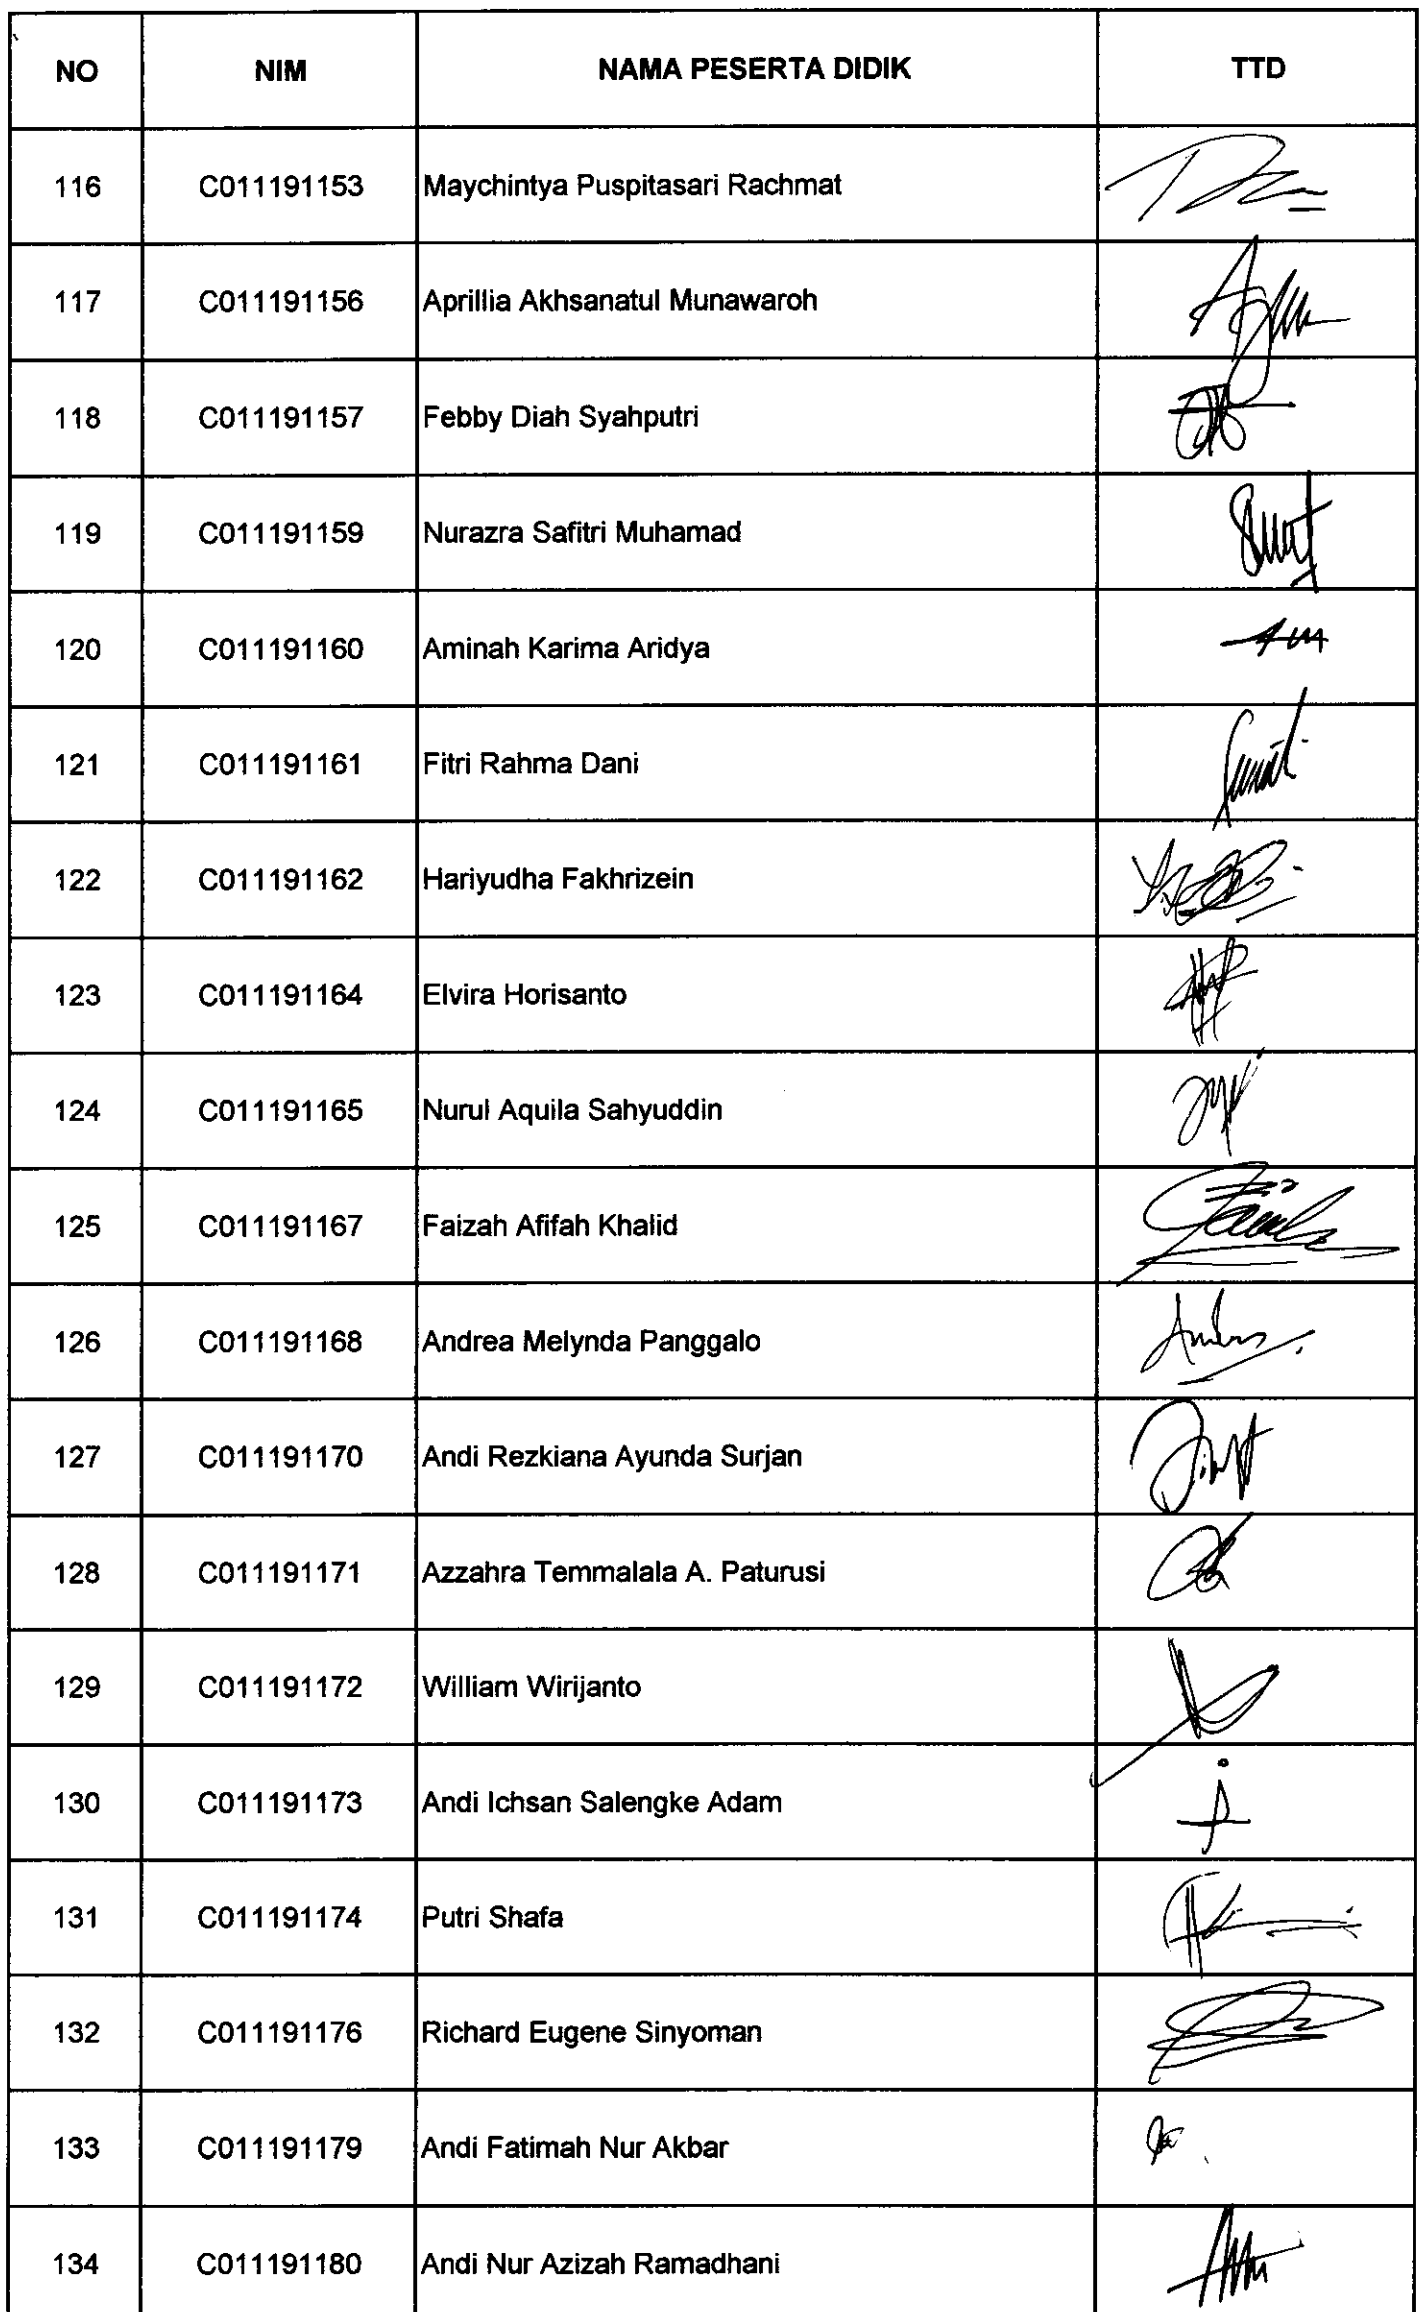 NO NIM NAMA PESERTA DIDIK TTD
116 C011191153 Maychintya Puspitasari Rachmat
117 C011191156 Aprillia Akhsanatul Munawaroh
118 C011191157 Febby Diah Syahputri
119 C011191159 Nurazra Safitri Muhamad
120 C011191160 Aminah Karima Aridya
121 C011191161 Fitri Rahma Dani
122 C011191162 Hariyudha Fakhrizein
123 C011191164 Elvira Horisanto
124 C011191165 Nurul Aquila Sahyuddin
125 C011191167 Faizah Afifah Khalid
126 C011191168 Andrea Melynda Panggalo
127 C011191170 Andi Rezkiana Ayunda Surjan
128 C011191171 Azzahra Temmalala A. Paturusi
129 C011191172 William Wirijanto
130 C011191173 Andi Ichsan Salengke Adam
131 C011191174 Putri Shafa
132 C011191176 Richard Eugene Sinyoman
133 C011191179 Andi Fatimah Nur Akbar
134 C011191180 Andi Nur Azizah Ramadhani